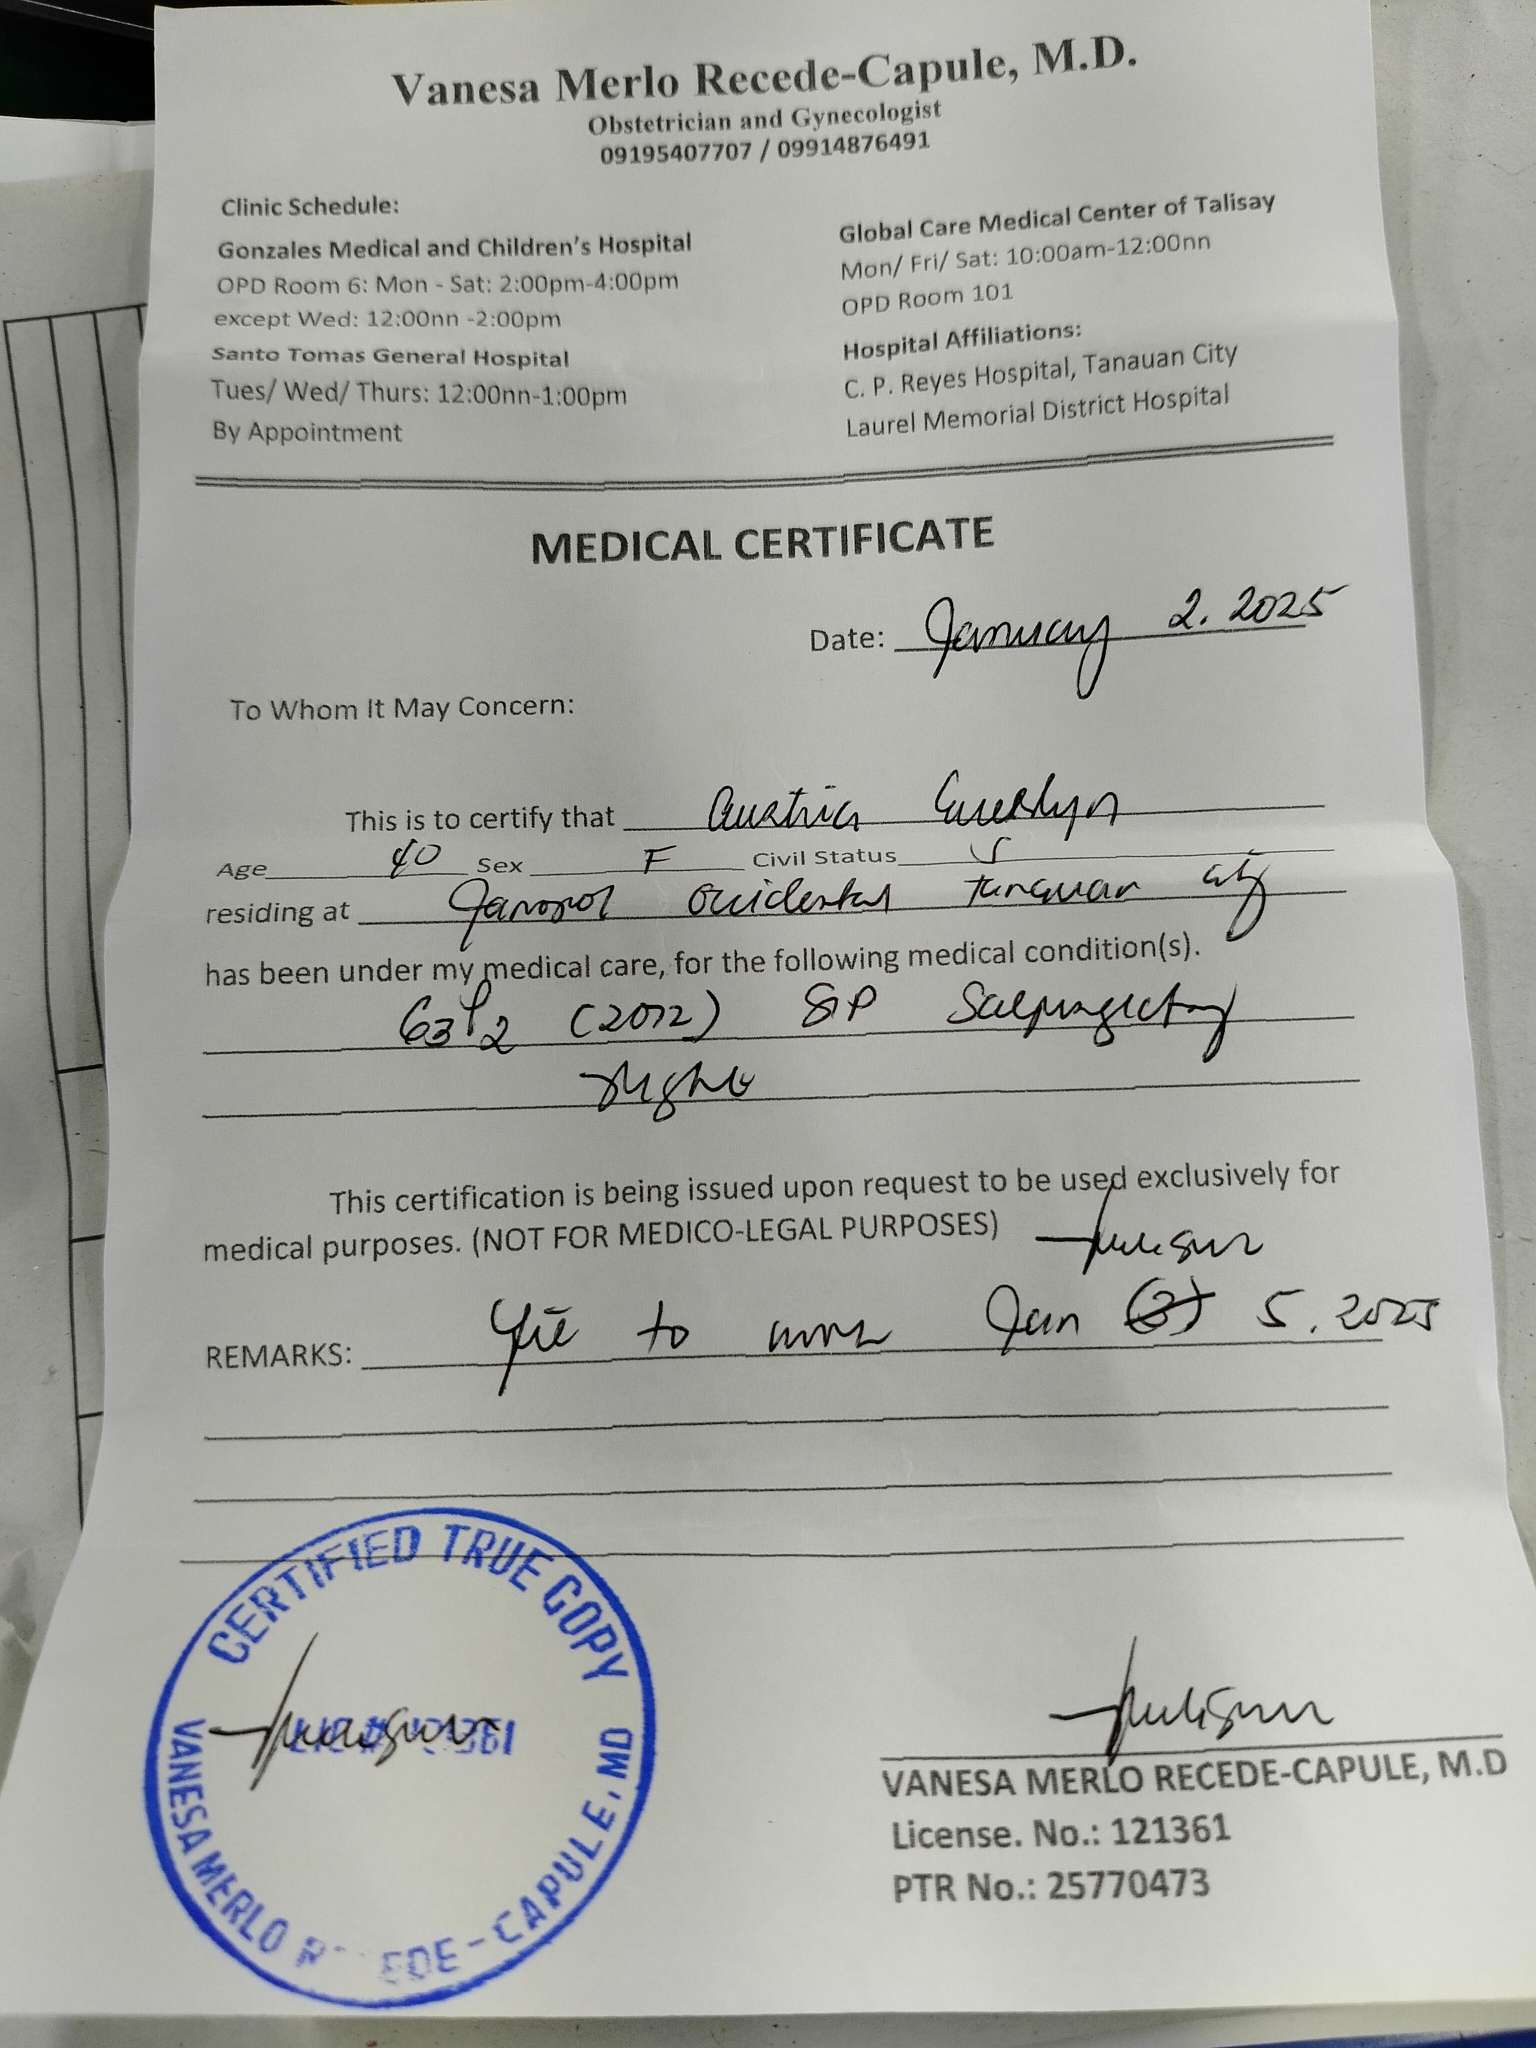 Vanesa Merlo Recede-Capule, M.D.
Obstetrician and Gynecologist
09195407707 / 09914876491
Clinic Schedule:
Gonzales Medical and Children's Hospital
OPD Room 6: Mon - Sat: 2:00pm-4:00pm
except Wed: 12:00nn -2:00pm
Santo Tomas General Hospital
Tues/ Wed/ Thurs: 12:00nn-1:00pm
By Appointment
Global Care Medical Center of Talisay
Mon/ Fri/ Sat: 10:00am-12:00nn
OPD Room 101
Hospital Affiliations:
C. P. Reyes Hospital, Tanauan City
Laurel Memorial District Hospital
MEDICAL CERTIFICATE
Date: January 2. 2025
To Whom It May Concern:
This is to certify that Austria Evelyn
Age 40 Sex F Civil Status S
residing at Janopol Occidental Tanauan City
has been under my medical care, for the following medical condition(s).
G3P2 (2012) S/P Salpingectomy
right
This certification is being issued upon request to be used exclusively for
medical purposes. (NOT FOR MEDICO-LEGAL PURPOSES)
REMARKS: to work Jan 5, 2025
CERTIFIED TRUE COPY
VANESA MERLO RECEDE-CAPULE, MD
VANESA MERLO RECEDE-CAPULE, M.D
License. No.: 121361
PTR No.: 25770473